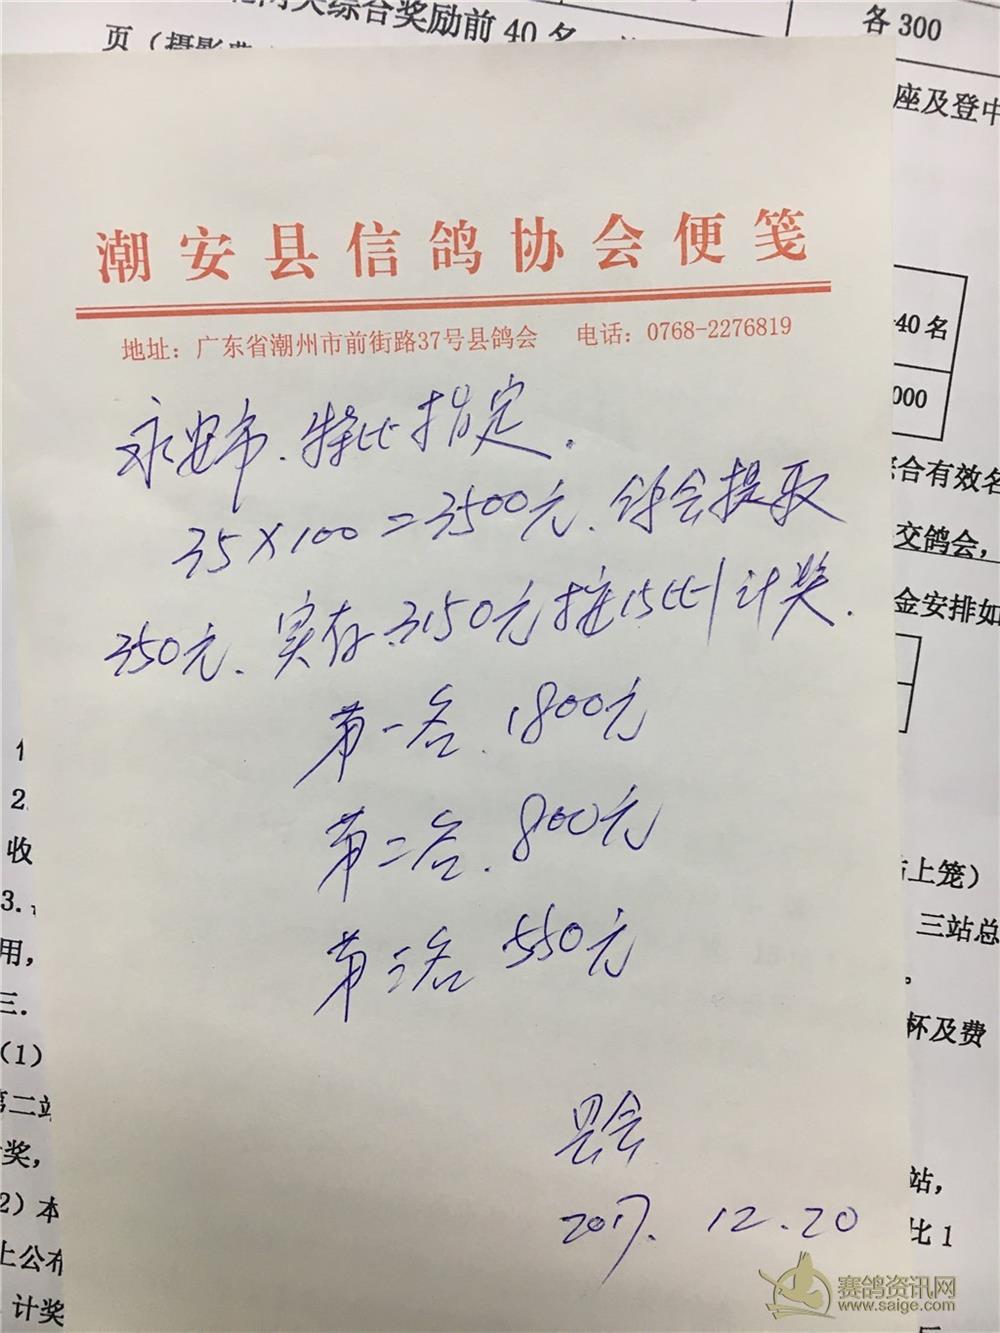 综合奖励前40名
各300
页（摄影费
座及登中
潮安县信鸽协会便笺
地址：广东省潮州市前街路37号县鸽会 电话：0768-2276819
永安市、特比指定．
35×100=3500元、钟会提取
350元、实存3150元按15比1计奖．
第一名、1800元
第二名、800元
第三名 550元
县会
2017．12．20
40名
000
综合有效名
交鸽会，
金安排如
上笼）
三站总
杯及费
站，
比1
2.
收
3.
用，
三．
（1）
第二站
奖，
2）本
上公布
计奖
赛鸽资讯网
www.saige.com